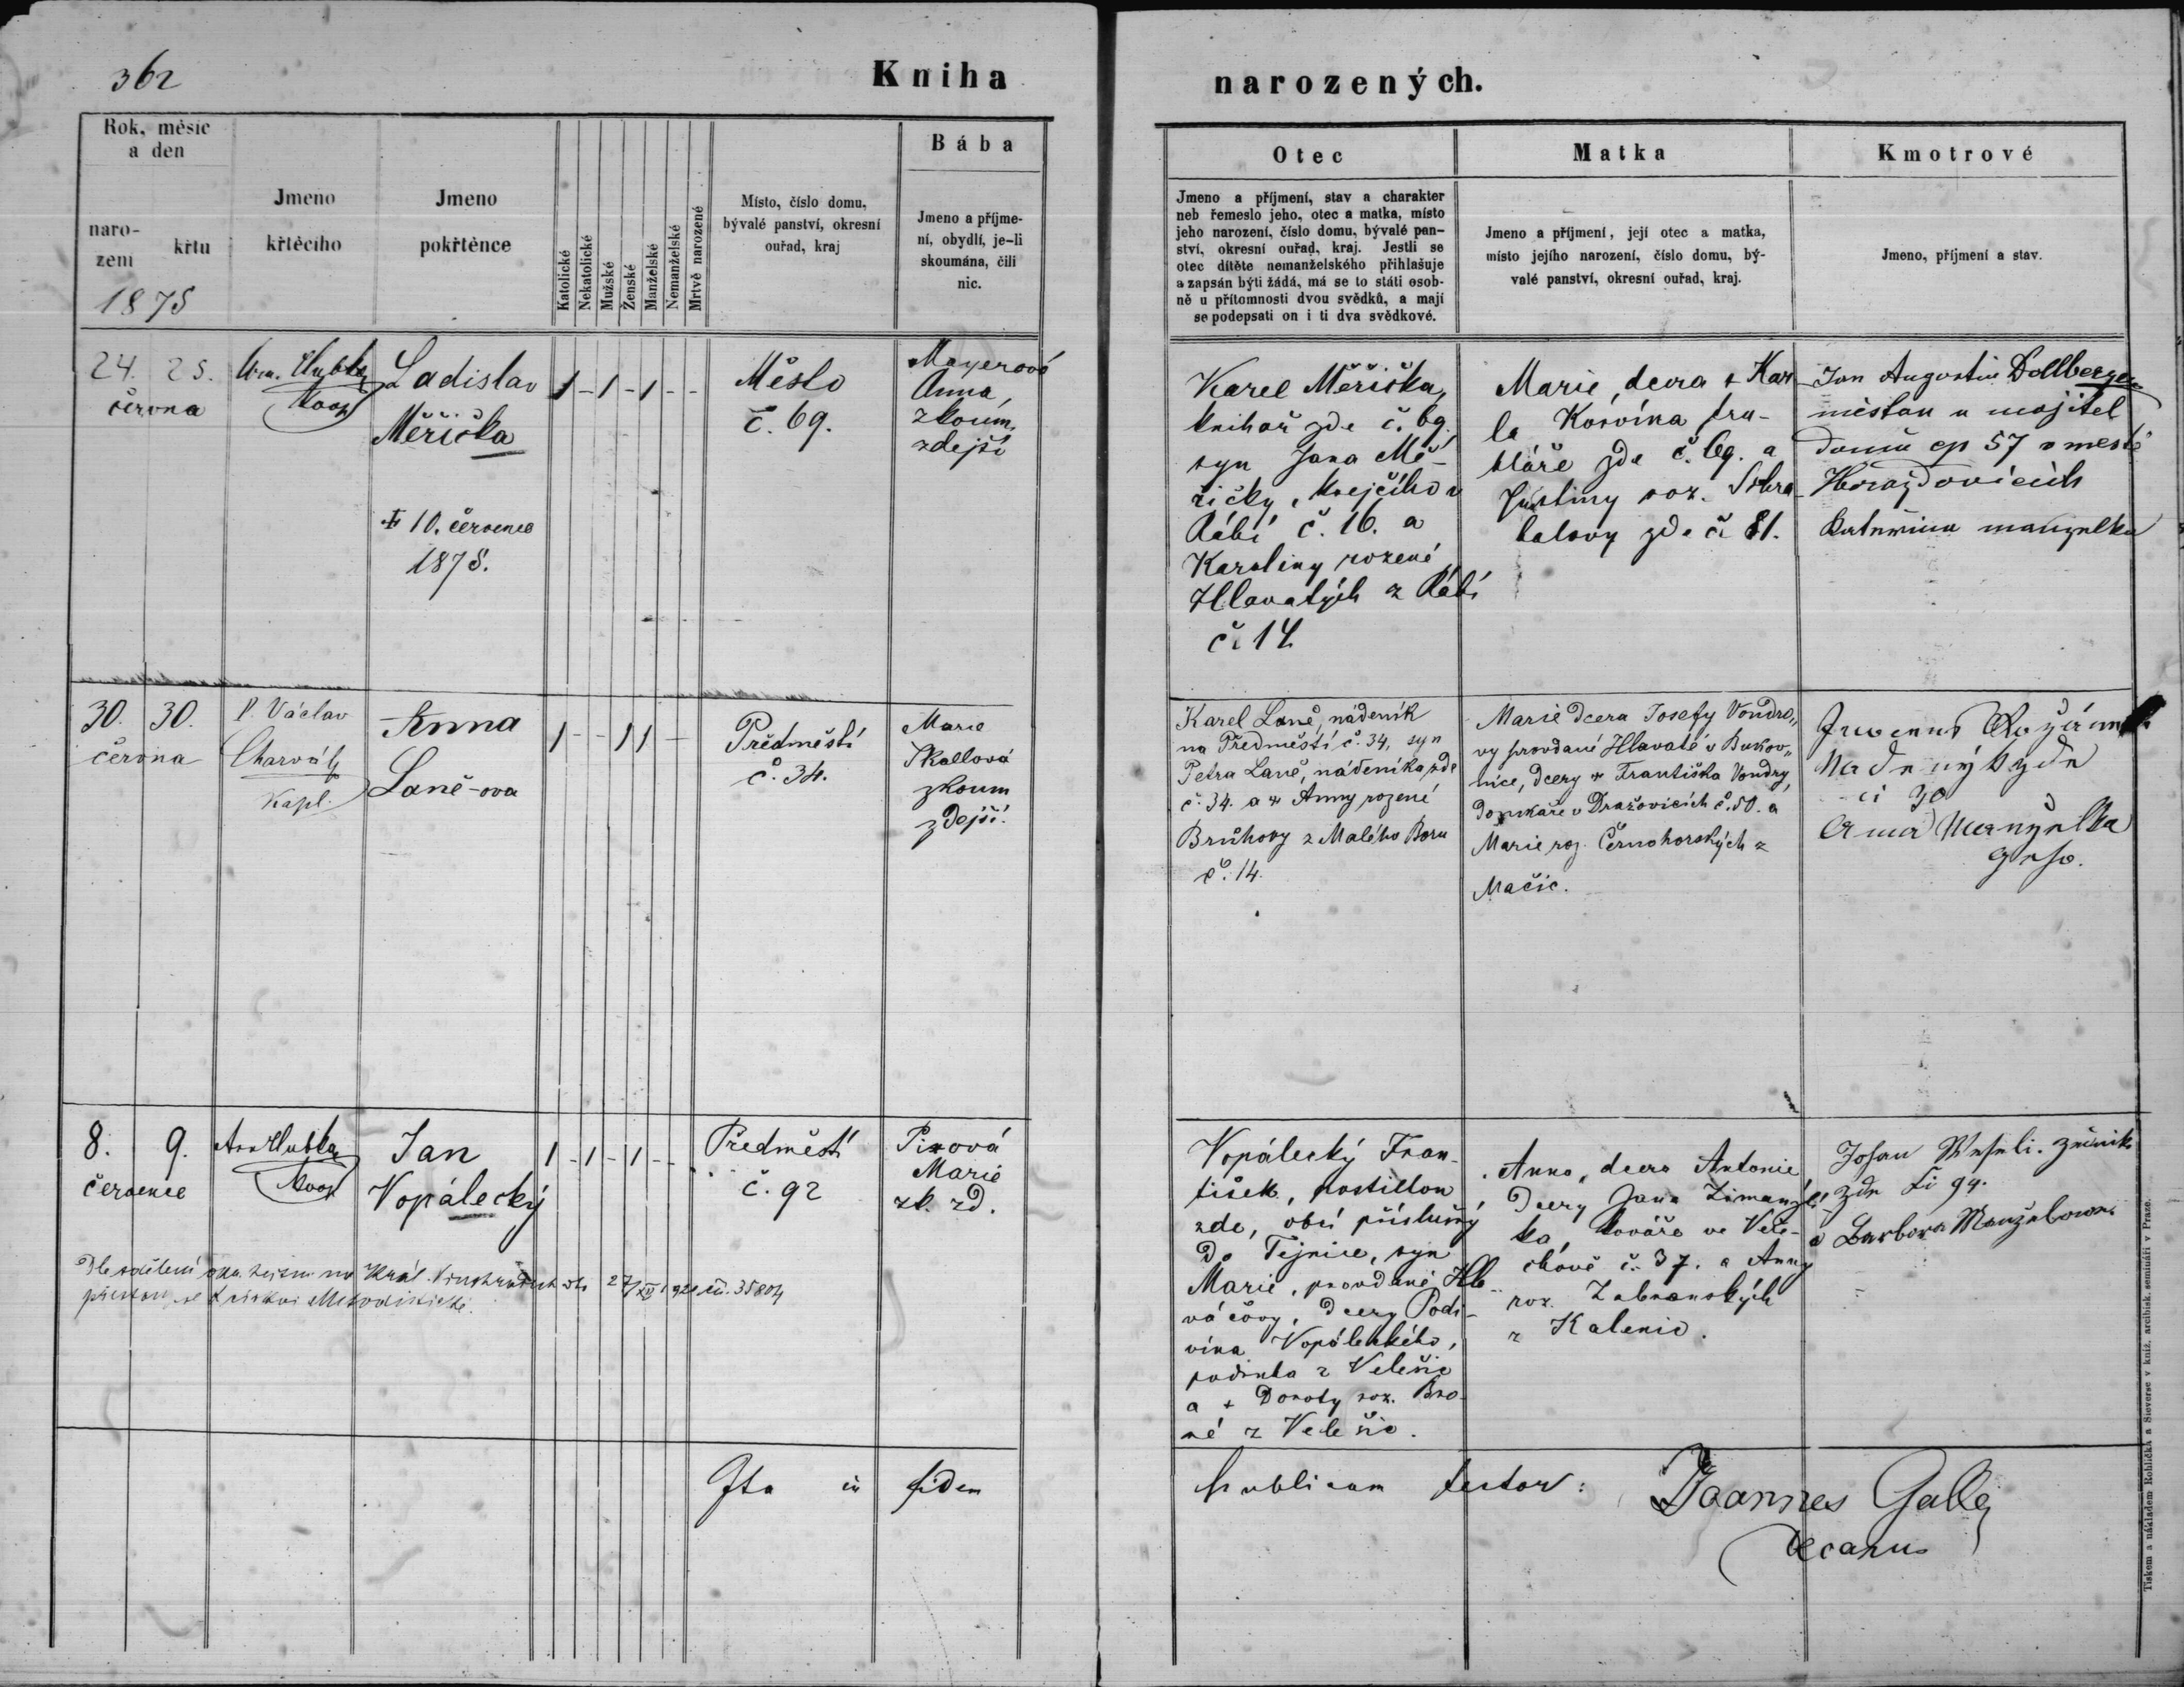 362
Kniha
narozených.
Rok, měsíc
a den
naro-
zení
křtu
1875
Jmeno
křtěcího
Jmeno
pokřtěnce
Katolické
Nekatolické
Mužské
Ženské
Manželské
Nemanželské
Mrtvě narozené
Místo, číslo domu,
bývalé panství, okresní
ouřad, kraj
Bába
Jmeno a příjme-
ní, obydlí, je-li
skoumána, čili
nic.
Otec
Jmeno a příjmení, stav a charakter
neb řemeslo jeho, otec a matka, místo
jeho narození, číslo domu, bývalé pan-
ství, okresní ouřad, kraj. Jestli se
otec dítěte nemanželského přihlašuje
a zapsán býti žádá, má se to státi osob-
ně u přítomnosti dvou svědků, a mají
se podepsati on i ti dva svědkové.
Matka
Jmeno a příjmení, její otec a matka,
místo jejího narození, číslo domu, bý-
valé panství, okresní ouřad, kraj.
Kmotrové
Jmeno, příjmení a stav.
24. 25.
června
Koop
Ladislav
Měřička
10. července
1875.
1 - 1 - 1 - -
Město
č. 69.
Mayerová
Anna,
zkoum.
zdejší
Karel Měřička,
knihař zde č. 69.
syn Jana Mě-
řičky, krejčího v
Rábí č. 16. a
Karoliny rozené
Hlavatých z Rábí
č. 14
Marie, dcera + Kar
la Kosvína tru-
hláře zde č. 69. a
Justiny roz.
zde č. 81.
Jan Augustin Dollberger
měštan a majitel
domu čp 57 v městě
Horažďovicích
manzelka
30. 30.
června
P. Václav
Charvát
Kapl.
Anna
Laně-ova
1 - - 1 1 -
Předměstí
č. 34.
Marie
Skallová
zkoum
zdejší.
Karel Laně, nádeník
na Předměstí č. 34, syn
Petra Laně, nádeníka zde
č. 34. a Anny rozené
Brůhovy z Malého Boru
č. 14.
Marie dcera Josefy Vondro„
vy provdané Hlavaté v Bukov„
nice, dcery Františka Vondry,
domkáře v Dražovicích č. 50. a
Marie roz. Černohorských z
Mačic.
30
Anna
8. 9.
července
Koop
Jan
Vopálecký
1 - 1 - 1 - -
Předměstí
č. 92
Marie
zk. zd.
Dle sdělení
Vopálecký Fran-
tišek, postillon
zde, obcí příslušný
do Týnice, syn
Marie, provdané Hla-
váčovy, dcery Podi-
vína Vopáleckého,
z Velešic
a + Doroty roz.
z Velešic.
Anna, dcera Antonie
dcery Jana
kováře ve Vele-
chově č. 37. a Anny
roz. Zabranských
z Kalenic.
Barbora Manželowa
Ita in fidem
publicam testor:
Joannes Galle
Decanus
Tiskem a nákladem Rohlíčka a Sieverse v kníž. arcibisk. semináři v Praze.